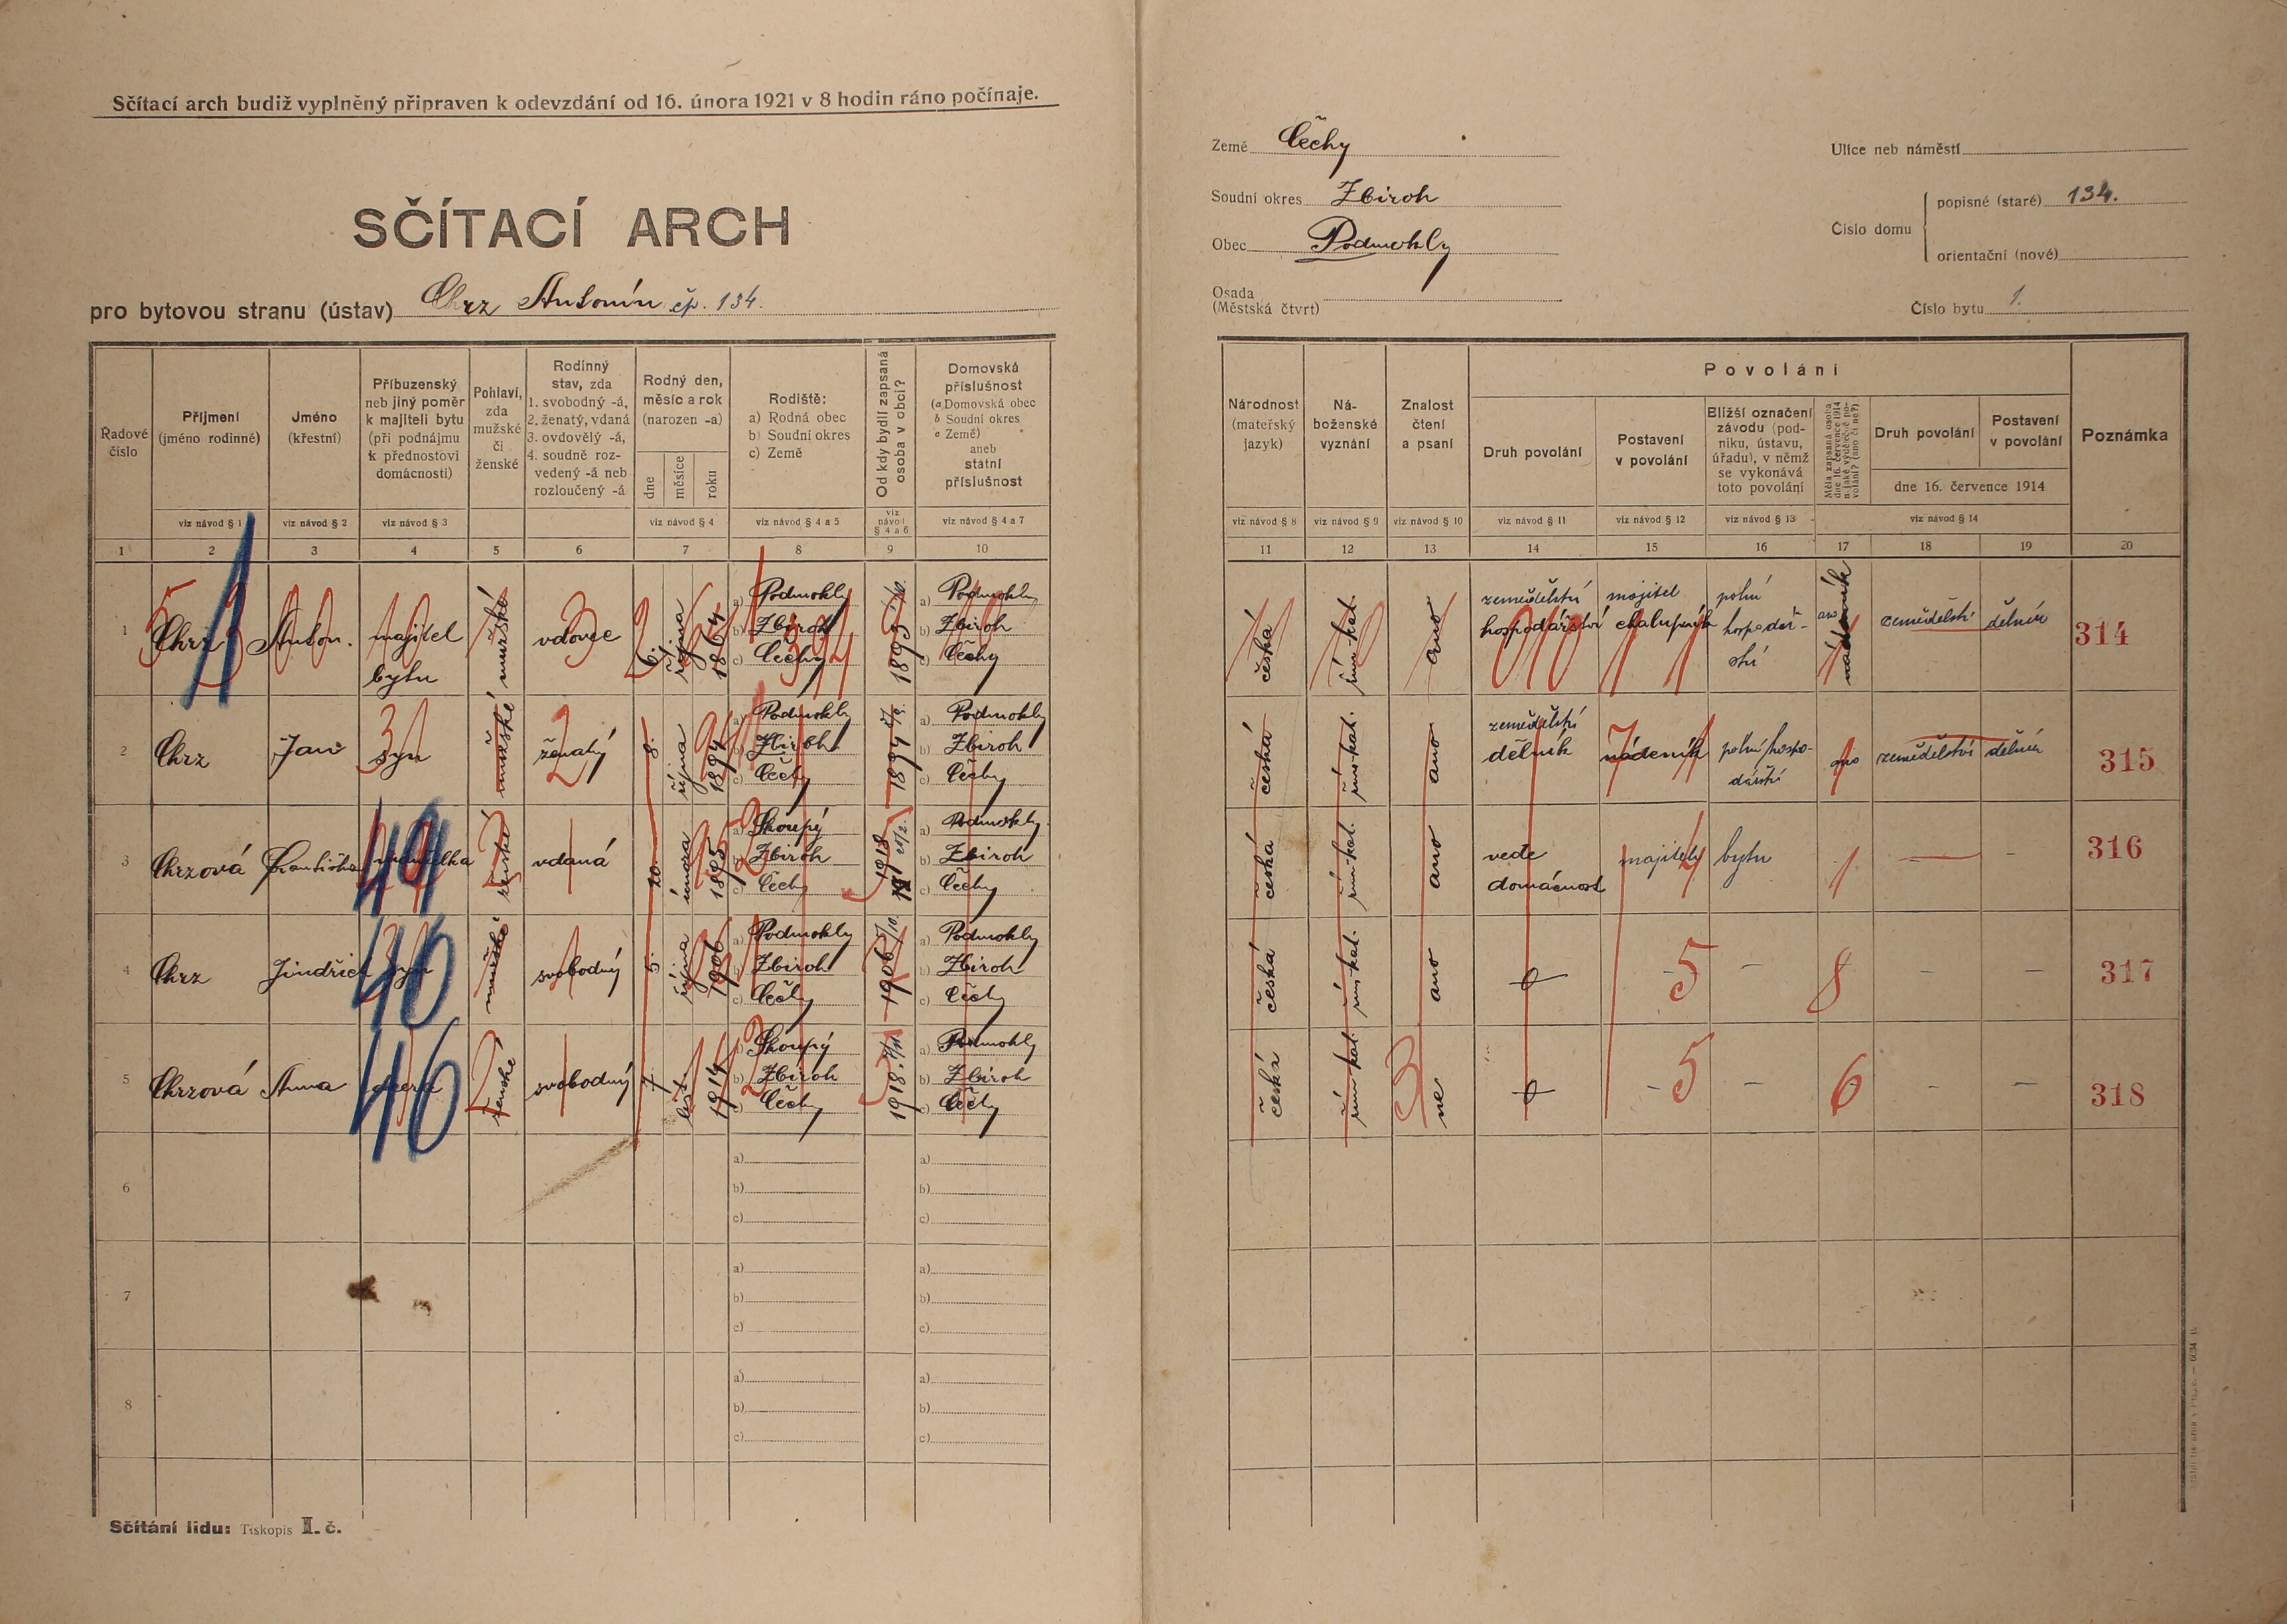 Sčítací arch budiž vyplněný připraven k odevzdání od 16. února 1921 v 8 hodin ráno počínaje.
SČÍTACÍ ARCH
pro bytovou stranu (ústav) Chrz Antonín čp. 134.
Země Čechy
Soudní okres Zbiroh
Obec Podmokly
Osada
(Městská čtvrť)
Ulice neb náměstí
Číslo domu
popisné (staré) 134.
orientační (nové)
Číslo bytu 1.
Řadové číslo
Příjmení (jméno rodinné)
Jméno (křestní)
Příbuzenský neb jiný poměr k majiteli bytu (při podnájmu k přednostovi domácnosti)
Pohlaví, zda mužské či ženské
Rodinný stav, zda 1. svobodný -á, 2. ženatý, vdaná 3. ovdovělý -á, 4. soudně rozvedený -á neb rozloučený -á
Rodný den, měsíc a rok (narozen -a)
dne měsíce roku
Rodiště: a) Rodná obec b) Soudní okres c) Země
Od kdy bydlí zapsaná osoba v obci?
Domovská příslušnost (a Domovská obec b Soudní okres c Země) aneb státní příslušnost
viz návod § 1 viz návod § 2 viz návod § 3 viz návod § 4 viz návod § 4 a 5 viz návod § 4 a 6 viz návod § 4 a 7
1 2 3 4 5 6 7 8 9 10
Národnost (mateřský jazyk)
Náboženské vyznání
Znalost čtení a psaní
Povolání
Druh povolání
Postavení v povolání
Bližší označení závodu (podniku, ústavu, úřadu), v němž se vykonává toto povolání
Měla zapsaná osoba dne 16. července 1914 nějaké výdělečné povolání? (ano či ne?)
Druh povolání
Postavení v povolání
dne 16. července 1914
Poznámka
viz návod § 8 viz návod § 9 viz návod § 10 viz návod § 11 viz návod § 12 viz návod § 13 viz návod § 14
11 12 13 14 15 16 17 18 19 20
1 Chrz Anton. majitel bytu mužské vdovec 6. října 1864 a) Podmokly b) Zbiroh c) Čechy a) Podmokly b) Zbiroh c) Čechy
česká řím-kat. ano zemědělství hospodářství majitel chalupník polní hospodářství nádeník zemědělství dělník 314
2 Chrz Jan syn mužské ženatý 8. října 1894 a) Podmokly b) Zbiroh c) Čechy 1894 a) Podmokly b) Zbiroh c) Čechy
česká řím-kat. ano zemědělství dělník nádeník polní hospodářství ano zemědělství dělník 315
3 Chrzová Františka manželka ženské vdaná 20. února 1895 a) Skoupý b) Zbiroh c) Čechy 1918 a) Podmokly b) Zbiroh c) Čechy
česká řím-kat. ano vede domácnost majitele bytu 1 – 316
4 Chrz Jindřich syn mužské svobodný 5. října 1906 a) Podmokly b) Zbiroh c) Čechy 1906 5/10. a) Podmokly b) Zbiroh c) Čechy
česká řím-kat. ano – 5 – 8 – – 317
5 Chrzová Anna dcera ženské svobodný 7. 1914 a) Skoupý b) Zbiroh c) Čechy 1918. a) Podmokly b) Zbiroh c) Čechy
česká řím-kat. 3 ne – 5 – 6 – – 318
6 a) b) c) a) b) c)
7 a) b) c) a) b) c)
8 a) b) c) a) b) c)
Sčítání lidu: Tiskopis II. č.